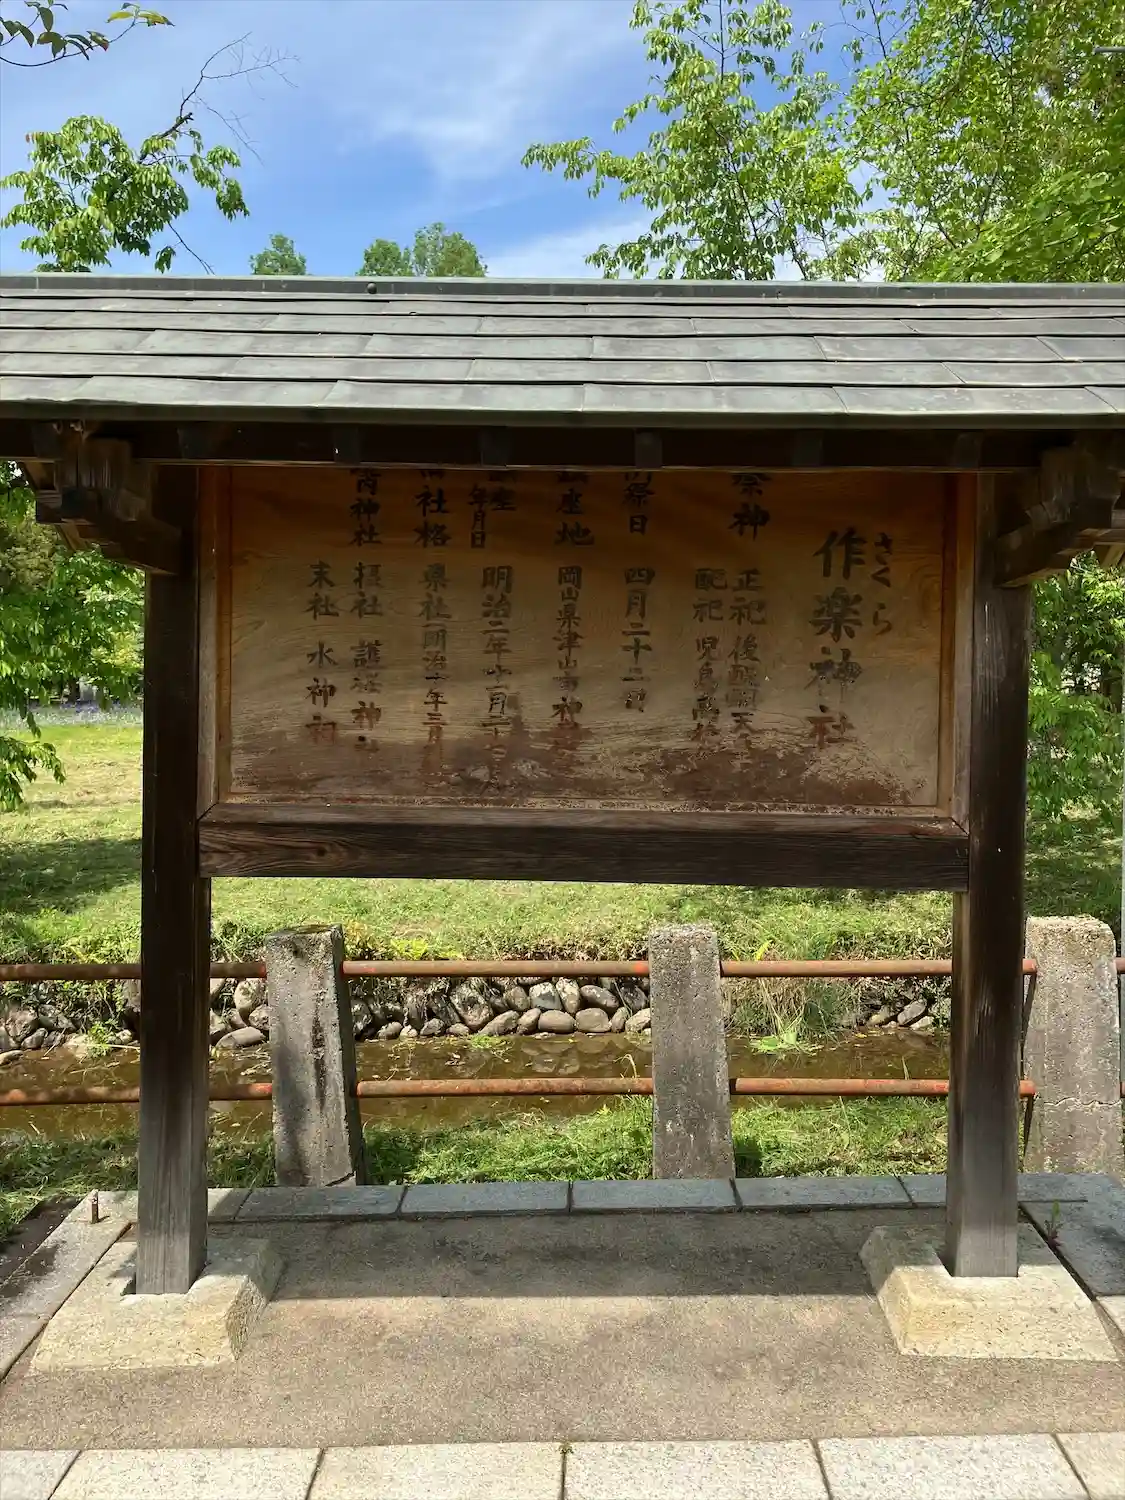 さくら
作楽神社
祭神 正祀 後醍醐天
配祀 児島高
例祭日 四月二十二日
鎮座地 岡山県津山市神
鎮座年月日 明治二年十一月二十
旧社格 県社 明治十年三月
境内神社 摂社 護桜神社
末社 水神祠